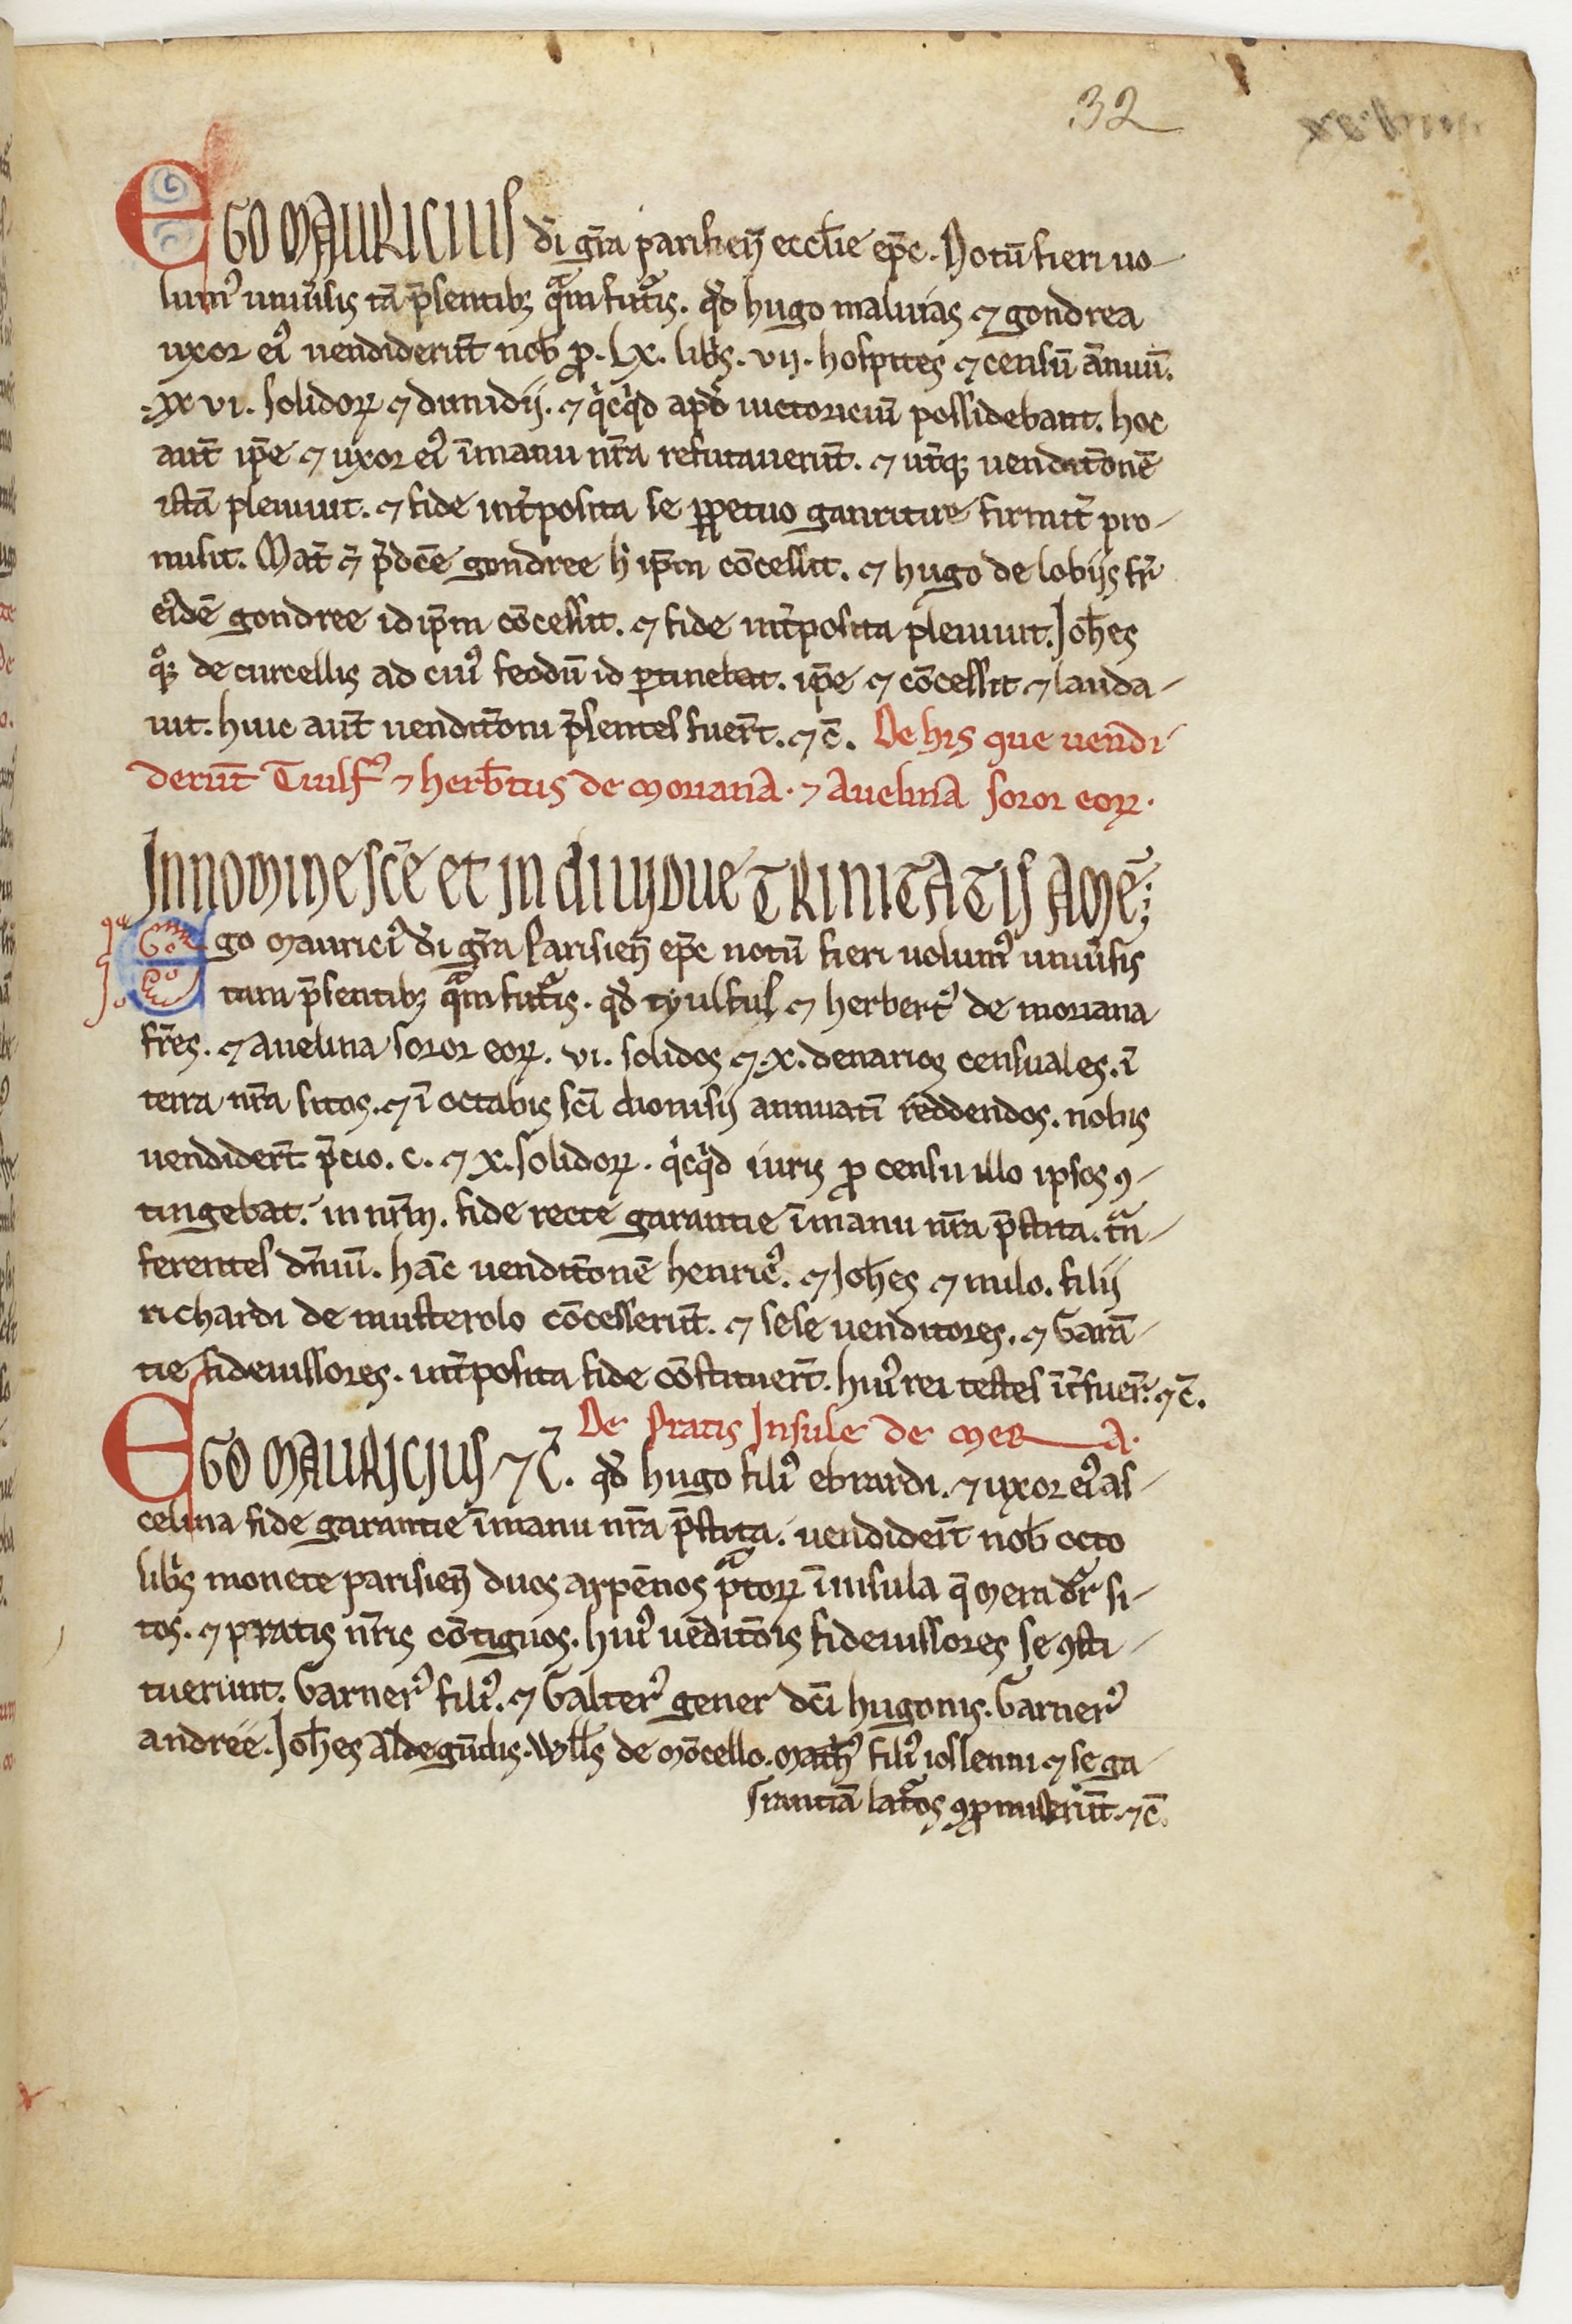 32
EGO MAURICIUS dī gr̄a parisien̄ eccl̄ie ep̄c. Notū fieri uo-
lum᷒ uniu̾sis tā p̄sentibꝫ qᷓm futᷓis. qd̄ hugo maluias ⁊ gondrea
uxor ei᷒ uendiderūt nob̄ ꝓ. lx. lib̄s. vii. hospites ⁊ censū ānuū.
.xxvi. solidoꝝ ⁊ dimidij. ⁊ qͥcqͥd apd̄ uictoriciū possidebant. hoc
aut̄ ip̄e ⁊ uxor ei᷒ ī manu nr̄a refutauerūt. ⁊ ut̾qꝫ uendit̄onē
istā pleuiuit. ⁊ fide int̾posita se ꝑpetuo garitire firmit̾ pro-
misit. Mat̾ ⁊ p̄dc̄e gondree h̄ ip̄m cōcessit. ⁊ hugo de lobijs fr̄
ei᷒dē gondree id ip̄m cōcessit. ⁊ fide int̾posita pleuiuit. Joh̄es
qͦꝫ de curcellis ad cui᷒ feodū id ꝑtinebat. ip̄e ⁊ cōcessit ⁊ lauda-
uit. huic aut̄ uendit̄oni p̄sentes fuer̄t. ⁊ c̄. De his que uendi
derūt Tiulf᷒ ⁊ herb̄tus de moriana. ⁊ auelina soror eoꝝ.
IN NOMINE SCE ET INDIUIDUE TRINITATIS AMĒ;
Ego maurici᷒ dī gr̄a Parisien̄ ep̄c notū fieri uolum᷒ uniu̾sis
tam p̄sentibꝫ qᷓm futᷓis. qd̄ tyulfus ⁊ herbert᷒ de moriana
fr̄es. ⁊ auelina soror eoꝝ. vi. solidos ⁊ .x. denarios censuales. ī
terra nr̄a sitos. ⁊ ī octabis scī dionisij annuatī reddendos. nobis
uendider̄t p̄cio. c. ⁊ x. solidoꝝ. qͥcqͥd iuris ꝓ censu illo ipsos ꝯ-
tingebat. in nr̄m. fide recte garantie ī manu nr̄a p̄stita. tᷓn-
ferentes dn̄iū. hāc uendit̄onē henric᷒. ⁊ Joh̄es ⁊ milo. filij
richardi de musterolo cōcesserūt. ⁊ sese uenditores. ⁊ Garā-
tie fideiussores. int̾posita fide cōstituer̄t. hui᷒ rei testes īt̾fuer̄. ⁊ c̄.
De Pratis Insule de MERA.
EGO MAURICIUS ⁊ C̄. qd̄ hugo fili᷒ ebrardi. ⁊ uxor ei᷒ as-
celina fide garantie ī manu nr̄a p̄stita. uendider̄t nob̄ octo
lib̄s monete parisien̄ duos arpēnos pᷓtoꝝ ī insula q̄ mera dr̄ si-
tos. ⁊ pratis nr̄is cōtiguos. hui᷒ uēdit̄ois fideiussores se ꝯsti-
tuerunt. Garner᷒ fili᷒. ⁊ Galter᷒ gener dc̄i hugonis. Garner᷒
andree. Joh̄es Aldegūdis. Wll̄s de mōcello. math̄᷒ fili᷒ ioslenni ⁊ se ga-
rantiā latᷓos ꝯꝓmiserūt. ⁊ c̄.